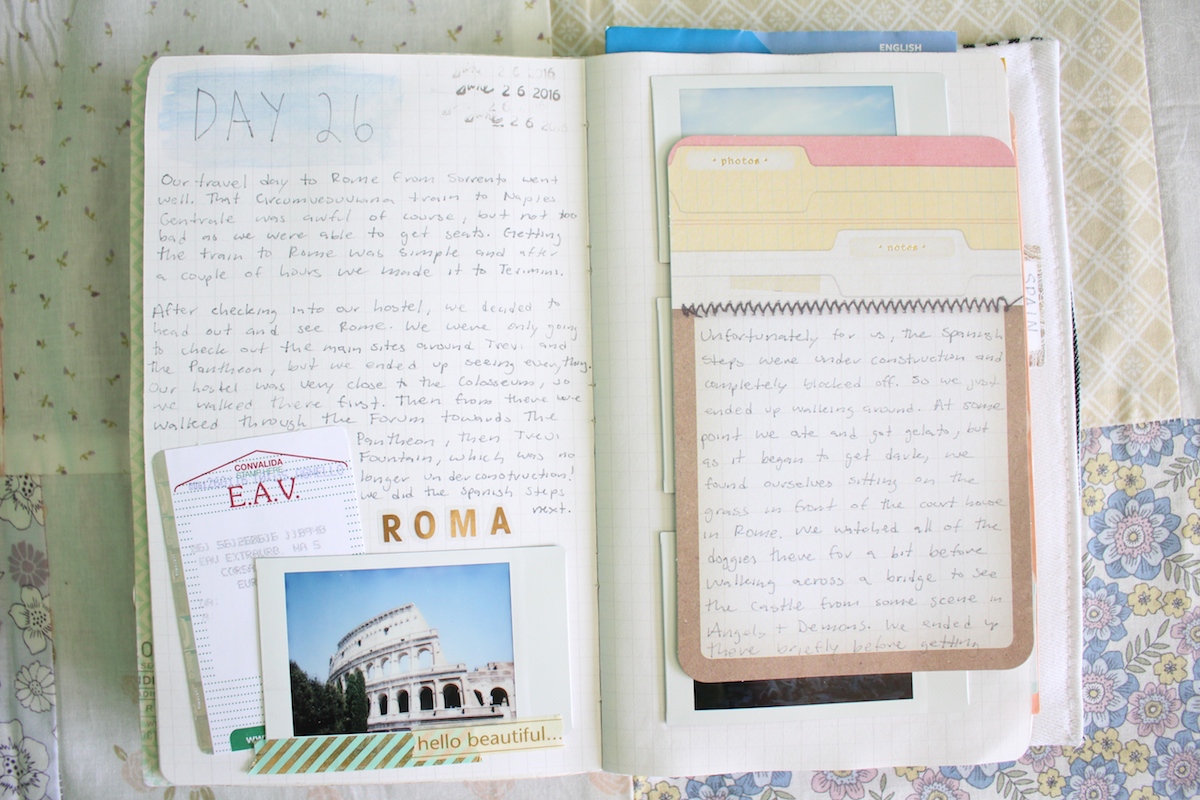 DAY 26
2 6 2016
2 6 2016
2 6
Our travel day to Rome from Sorrento went
well. That Circumvesuviana train to Naples
Centrale was awful of course, but not too
bad as we were able to get seats. Getting
the train to Rome was simple and after
a couple of hours we made it to Termini.
After checking into our hostel, we decided to
head out and see Rome. We were only going
to check out the main sites around Trevi and
the Pantheon, but we ended up seeing everything.
Our hostel was very close to the Colosseum, so
we walked there first. Then from there we
walked through the Forum towards the
Pantheon, then Trevi
Fountain, which was no
longer under construction!
We did the Spanish Steps
next.
CONVALIDA
STAMP HERE
E.A.V.
EAV EXTRAURB. NA 5
ROMA
www
hello beautiful...
ENGLISH
• photos •
• notes •
Unfortunately for us, the Spanish
Steps were under construction and
completely blocked off. So we just
ended up walking around. At some
point we ate and got gelato, but
as it began to get dark, we
found ourselves sitting on the
grass in front of the court house
in Rome. We watched all of the
doggies there for a bit before
walking across a bridge to see
the castle from some scene in
Angels + Demons. We ended up
there briefly before getting